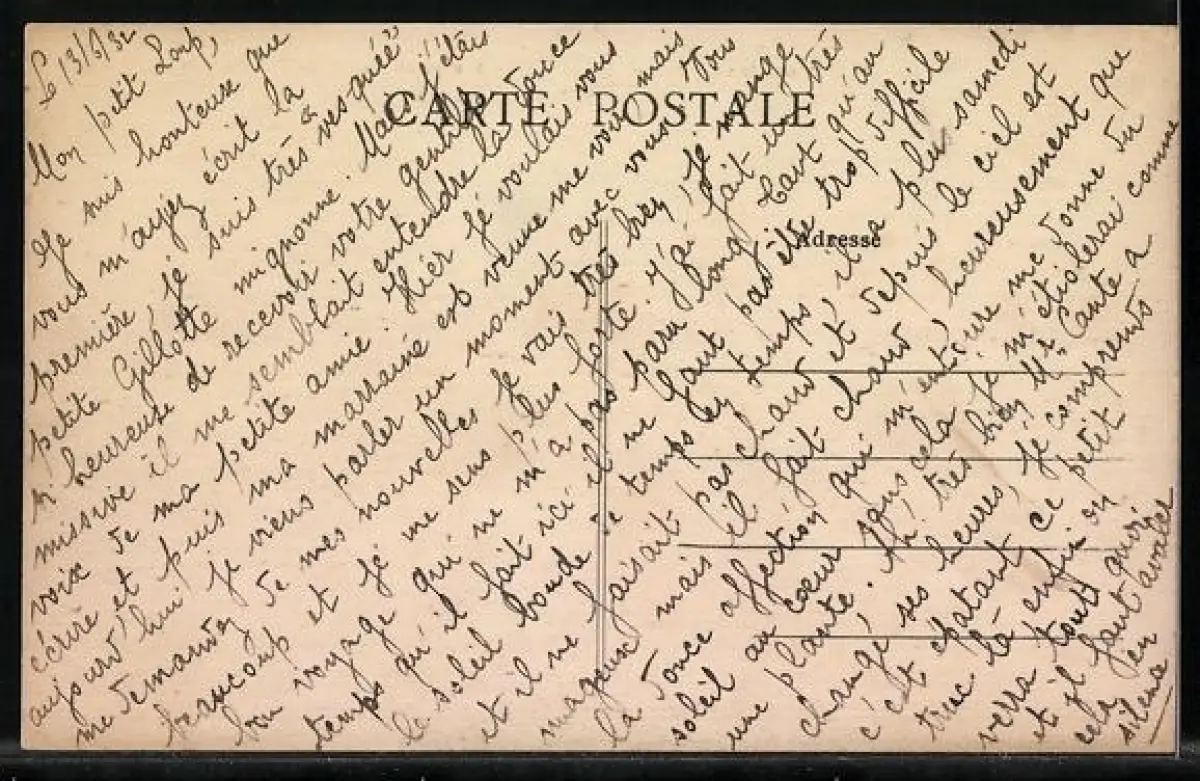 Le 13/5/32
Mon petit Loup,
Je suis honteuse que
vous m'ayez écrit la
première, je suis très "vesquée" à
petite Gillotte mignonne. Mais j'étais
si heureuse de recevoir votre gentille
missive il me semblait entendre la douce
voix de ma petite amie. Hier je voulais vous
écrire et puis ma marraine est venue me voir mais
aujourd'hui je viens parler un moment avec vous. Vous
me demandez de mes nouvelles je vais très bien, je mange
beaucoup et je me sens plus forte. J'ai fait un très
bon voyage qui ne m'a pas paru long. Tant qu'au
temps qu'il fait ici il ne faut pas être trop difficile
le soleil boude de temps en temps, il a plu samedi
et il ne faisait pas chaud et depuis le ciel est
nuageux mais il fait chaud, heureusement que
la douce affection qui m'entoure me donne du
soleil au coeur sans cela je m'étiolerai comme
une plante. Ah! très bien Mr Cante a
changé ses heures, je comprends
c'est épatant ce petit
truc là enfin on
verra tout quoi
et il faut avaler
cela en
silence
CARTE POSTALE
Adresse